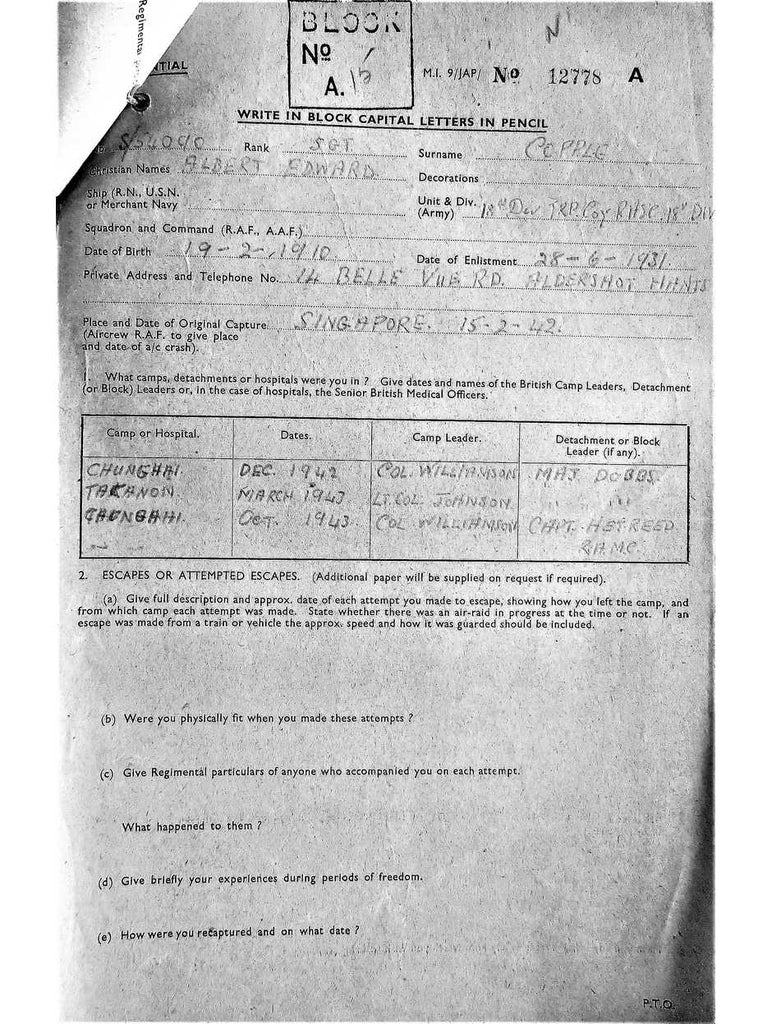 Regimental
NTIAL
BLOCK
Nº
A.
M.I. 9/JAP/ Nº 12778 A
WRITE IN BLOCK CAPITAL LETTERS IN PENCIL
Rank SGT. Surname COPPLE
Christian Names ALBERT EDWARD Decorations
Ship (R.N., U.S.N.
or Merchant Navy
Unit & Div.
(Army) 18th Div TRP. Coy RASC. 18th DIV
Squadron and Command (R.A.F., A.A.F.)
Date of Birth 19-2-1910. Date of Enlistment 28-6-1931.
Private Address and Telephone No. 14 BELLE VUE RD. ALDERSHOT HANTS
Place and Date of Original Capture SINGAPORE. 15-2-42.
(Aircrew R.A.F. to give place
and date of a/c crash).
1. What camps, detachments or hospitals were you in ? Give dates and names of the British Camp Leaders, Detachment
(or Block) Leaders or, in the case of hospitals, the Senior British Medical Officers.
Camp or Hospital. Dates. Camp Leader. Detachment or Block
Leader (if any).
CHUNGHAI DEC. 1942 COL. WILLIAMSON MAJ DOBBS.
TAKANON. MARCH 1943 LT. COL. JOHNSON " "
CHUNGHAI. OCT. 1943 COL WILLIAMSON CAPT. HETREED
R.A.M.C.
2. ESCAPES OR ATTEMPTED ESCAPES. (Additional paper will be supplied on request if required).
(a) Give full description and approx. date of each attempt you made to escape, showing how you left the camp, and
from which camp each attempt was made. State whether there was an air-raid in progress at the time or not. If an
escape was made from a train or vehicle the approx. speed and how it was guarded should be included.
(b) Were you physically fit when you made these attempts ?
(c) Give Regimental particulars of anyone who accompanied you on each attempt.
What happened to them ?
(d) Give briefly your experiences during periods of freedom.
(e) How were you recaptured and on what date ?
P.T.O.